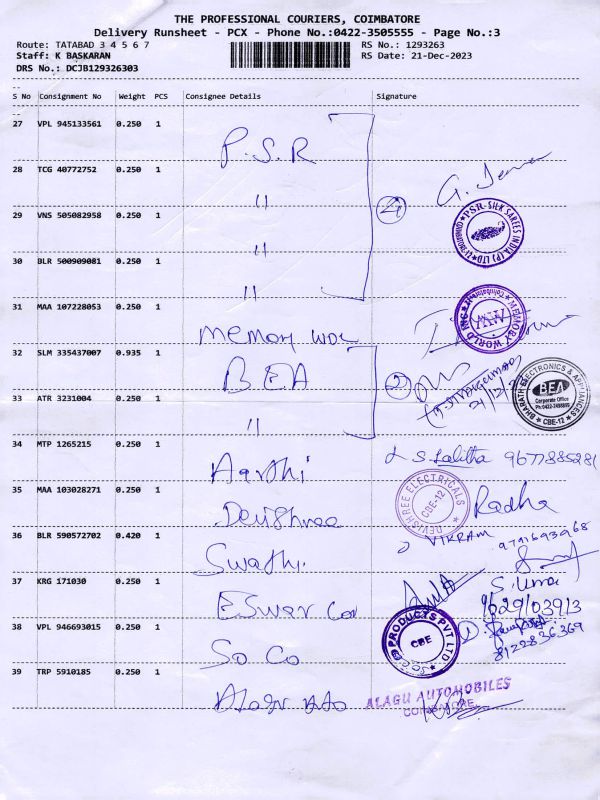 THE PROFESSIONAL COURIERS, COIMBATORE
Delivery Runsheet - PCX - Phone No.:0422-3505555 - Page No.:3
Route: TATABAD 3 4 5 6 7
Staff: K BASKARAN
DRS No.: DCJB129326303
RS No.: 1293263
RS Date: 21-Dec-2023
S No Consignment No Weight PCS Consignee Details Signature
27 VPL 945133561 0.250 1 P.S.R
28 TCG 40772752 0.250 1 11 4 G.
PSR SILK SAREES INDIA (P) LTD
29 VNS 505082958 0.250 1 11
30 BLR 500909081 0.250 1 11
31 MAA 107228053 0.250 1 memory
MEMORY WORLD INC
Coimbatore
32 SLM 335437007 0.935 1 BEA 2
BHARATH ELECTRONICS & APPLIANCES
BEA
Corporate Office
CBE-12
33 ATR 3231004 0.250 1 11
34 MTP 1265215 0.250 1 Aarthi S. Lalitha 9677885281
35 MAA 103028271 0.250 1 Devishree Radha
DEVISHREE ELECTRICALS
CBE-12
36 BLR 590572702 0.420 1 Swathi VIKRAM 9791693968
37 KRG 171030 0.250 1 Eswar Con S. Uma
9629103913
38 VPL 946693015 0.250 1 So Co
PRODUCTS PVT LTD
CBE
8122836369
39 TRP 5910185 0.250 1 Alagu Auto
ALAGU AUTOMOBILES
COIMBATORE